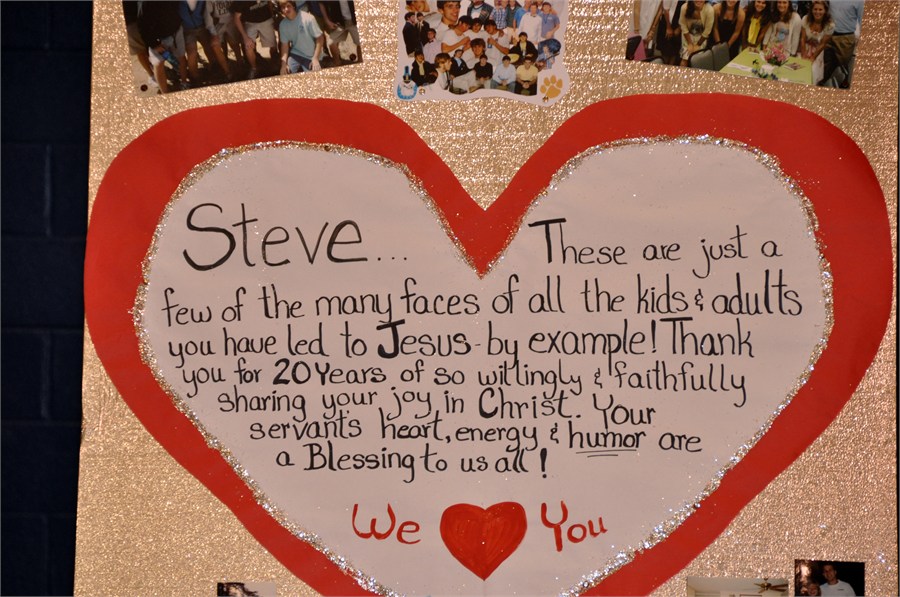 Steve... These are just a
few of the many faces of all the kids & adults
you have led to Jesus - by example! Thank
you for 20 Years of so willingly & faithfully
sharing your joy in Christ. Your
servants heart, energy & humor are
a Blessing to us all!
We ❤ You